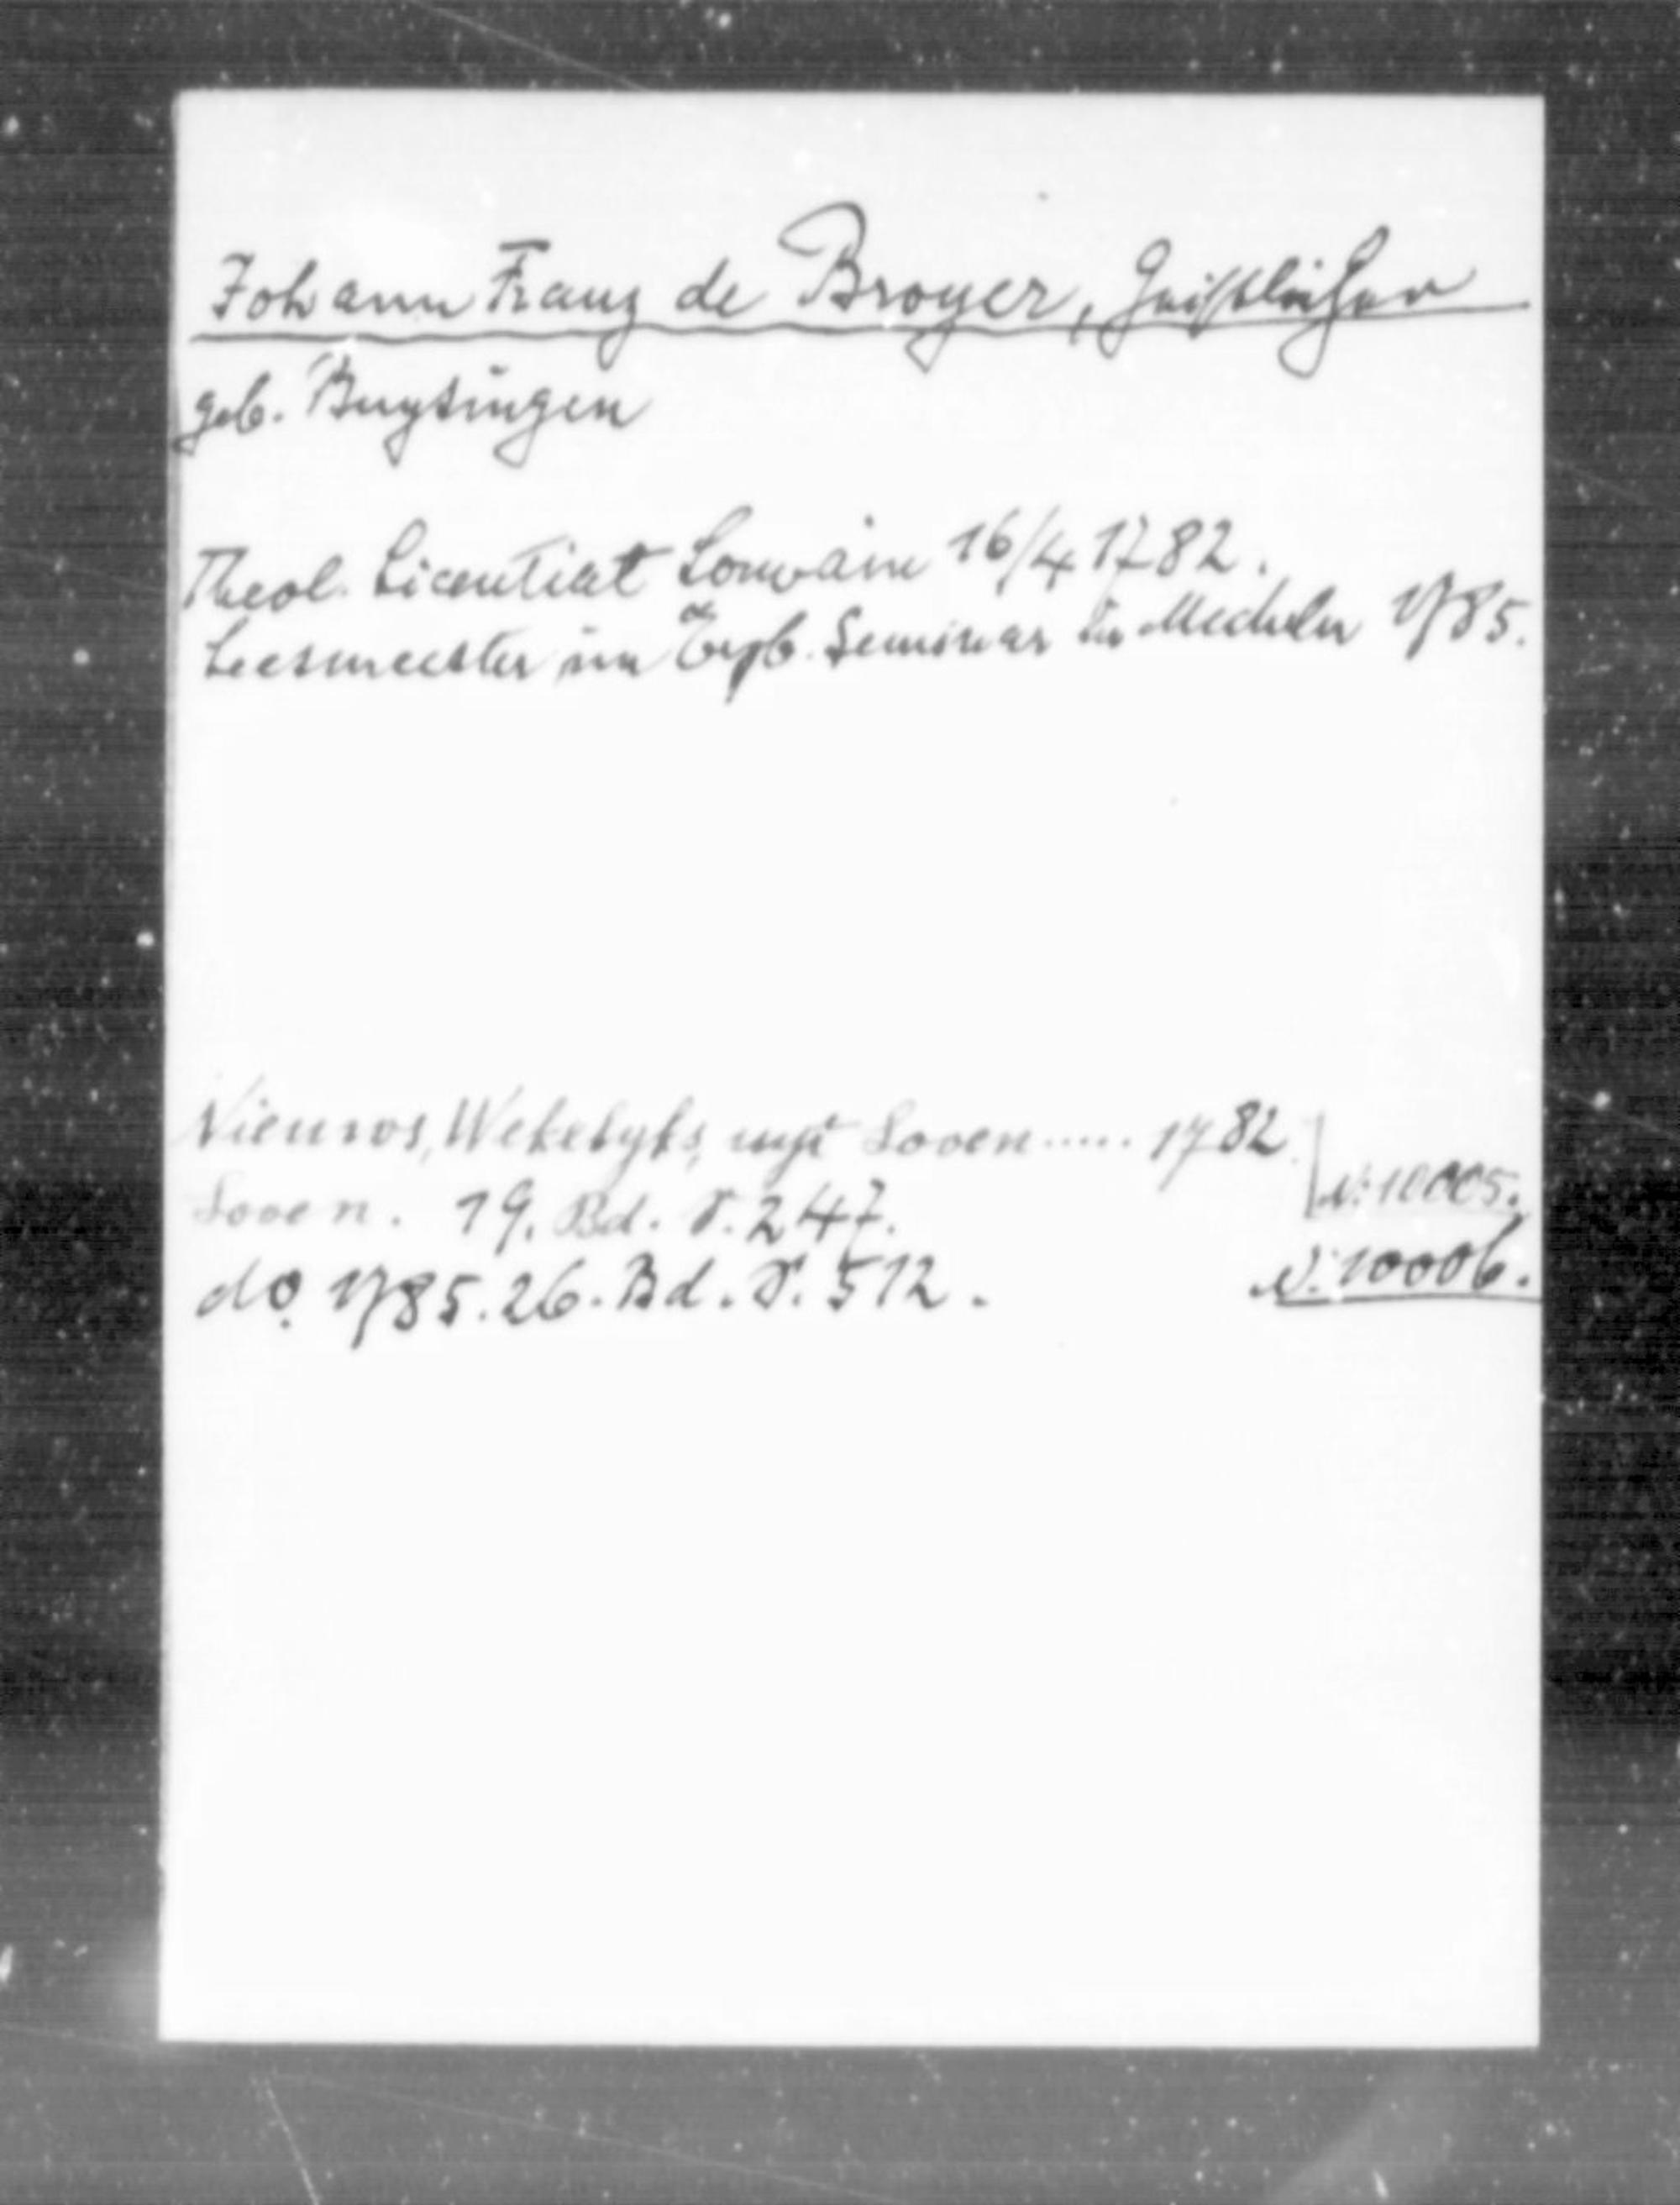 Johann Franz de Broyer, Geistlicher
geb. Buysingen
Theol. Licentiat Louvain 16/4 1782.
Leesmeester im Erzb. Seminar zu Mecheln 1785.
Nieuws, Wekelyks, uyt Loven ..... 1782
Loven. 19. Bd. S. 247. N: 10005.
do 1785. 26. Bd. S. 512. N: 10006.